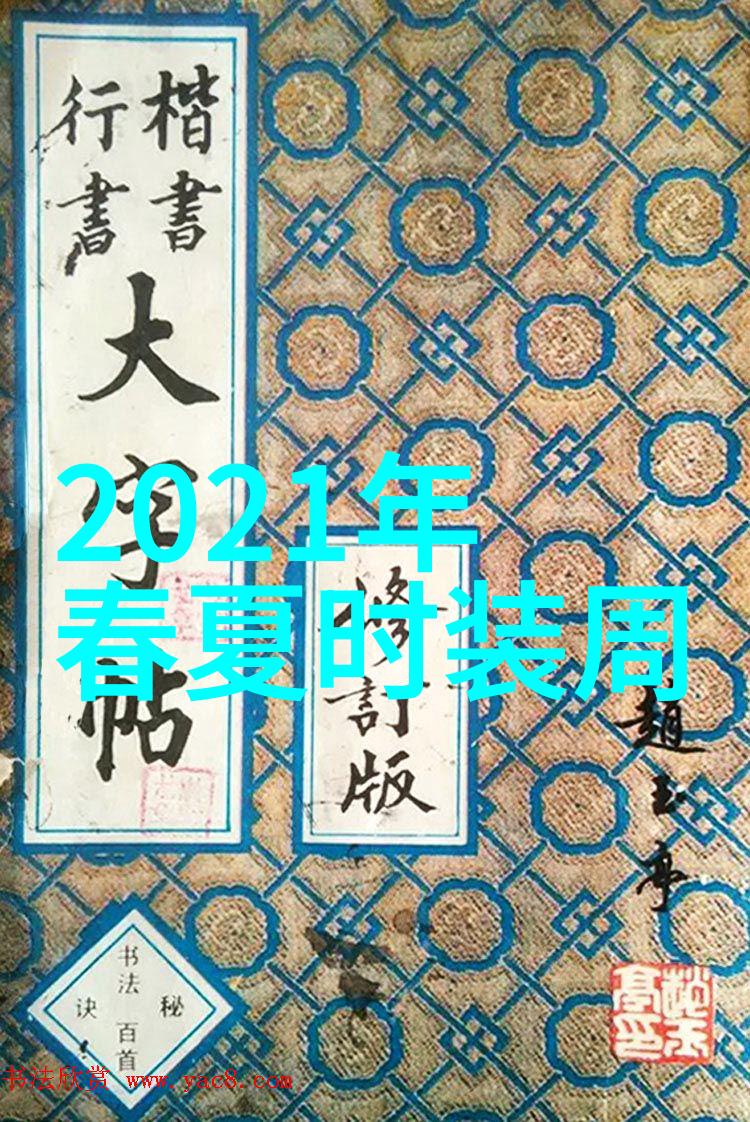 楷書
行書
大字帖
2021年
春夏时装周
修訂版
趙玉亭
书法百首
秘诀
书法欣赏 www.yac8.com